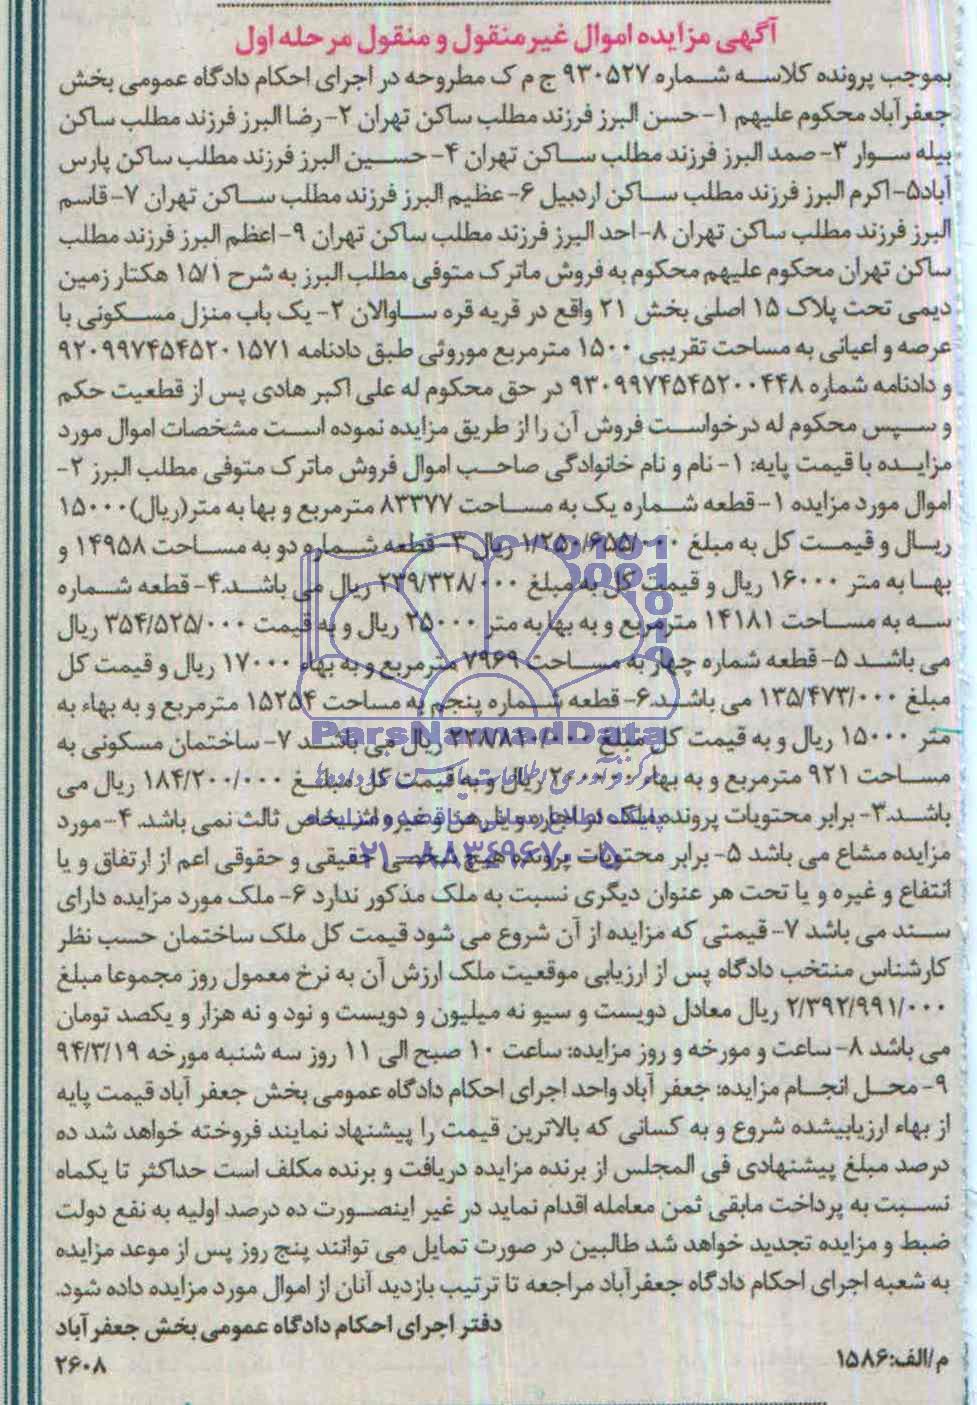 آگهی مزایده اموال غیرمنقول و منقول مرحله اول
بموجب پرونده کلاسه شماره ۹۳۰۵۲۷ ج م ک مطروحه در اجرای احکام دادگاه عمومی بخش
جعفرآباد محکوم علیهم ۱- حسن البرز فرزند مطلب ساکن تهران ۲- رضا البرز فرزند مطلب ساکن
بیله سوار ۳- صمد البرز فرزند مطلب ساکن تهران ۴- حسین البرز فرزند مطلب ساکن پارس
آباد۵- اکرم البرز فرزند مطلب ساکن اردبیل ۶- عظیم البرز فرزند مطلب ساکن تهران ۷- قاسم
البرز فرزند مطلب ساکن تهران ۸- احد البرز فرزند مطلب ساکن تهران ۹- اعظم البرز فرزند مطلب
ساکن تهران محکوم علیهم محکوم به فروش ماترک متوفی مطلب البرز به شرح ۱۵/۱ هکتار زمین
دیمی تحت پلاک ۱۵ اصلی بخش ۲۱ واقع در قریه قره ساوالان ۲- یک باب منزل مسکونی با
عرصه و اعیانی به مساحت تقریبی ۱۵۰۰ مترمربع موروثی طبق دادنامه ۹۲۰۹۹۷۴۵۴۵۲۰۱۵۷۱
و دادنامه شماره ۹۳۰۹۹۷۴۵۴۵۲۰۰۴۴۸ در حق محکوم له علی اکبر هادی پس از قطعیت حکم
و سپس محکوم له درخواست فروش آن را از طریق مزایده نموده است مشخصات اموال مورد
مزایده با قیمت پایه: ۱- نام و نام خانوادگی صاحب اموال فروش ماترک متوفی مطلب البرز ۲-
اموال مورد مزایده ۱- قطعه شماره یک به مساحت ۸۳۳۷۷ مترمربع و بها به متر(ریال)۱۵۰۰۰
ریال و قیمت کل به مبلغ ۱/۲۵۰/۶۵۵/۰۰۰ ریال ۳- قطعه شماره دو به مساحت ۱۴۹۵۸ و
بها به متر ۱۶۰۰۰ ریال و قیمت کل به مبلغ ۲۳۹/۳۲۸/۰۰۰ ریال می باشد.۴- قطعه شماره
سه به مساحت ۱۴۱۸۱ مترمربع و به بها به متر ۲۵۰۰۰ ریال و به قیمت ۳۵۴/۵۲۵/۰۰۰ ریال
می باشد ۵- قطعه شماره چهار به مساحت ۷۹۶۹ مترمربع و به بهاء ۱۷۰۰۰ ریال و قیمت کل
مبلغ ۱۳۵/۴۷۳/۰۰۰ می باشد.۶- قطعه شماره پنجم به مساحت ۱۵۲۵۴ مترمربع و به بهاء به
متر ۱۵۰۰۰ ریال و به قیمت کل مبلغ ۲۲۸/۸۱۰/۰۰۰ ریال می باشد ۷- ساختمان مسکونی به
مساحت ۹۲۱ مترمربع و به بهاء ۲۰۰۰۰۰ ریال و به قیمت کل مبلغ ۱۸۴/۲۰۰/۰۰۰ ریال می
باشد.۳- برابر محتویات پرونده ملک در اجاره و یا رهن و غیره اشخاص ثالث نمی باشد. ۴- مورد
مزایده مشاع می باشد ۵- برابر محتویات پرونده هیچ شخصی حقیقی و حقوقی اعم از ارتفاق و یا
انتفاع و غیره و یا تحت هر عنوان دیگری نسبت به ملک مذکور ندارد ۶- ملک مورد مزایده دارای
سند می باشد ۷- قیمتی که مزایده از آن شروع می شود قیمت کل ملک ساختمان حسب نظر
کارشناس منتخب دادگاه پس از ارزیابی موقعیت ملک ارزش آن به نرخ معمول روز مجموعا مبلغ
۲/۳۹۲/۹۹۱/۰۰۰ ریال معادل دویست و سیو نه میلیون و دویست و نود و نه هزار و یکصد تومان
می باشد ۸- ساعت و مورخه و روز مزایده: ساعت ۱۰ صبح الی ۱۱ روز سه شنبه مورخه ۹۴/۳/۱۹
۹- محل انجام مزایده: جعفر آباد واحد اجرای احکام دادگاه عمومی بخش جعفر آباد قیمت پایه
از بهاء ارزیابیشده شروع و به کسانی که بالاترین قیمت را پیشنهاد نمایند فروخته خواهد شد ده
درصد مبلغ پیشنهادی فی المجلس از برنده مزایده دریافت و برنده مکلف است حداکثر تا یکماه
نسبت به پرداخت مابقی ثمن معامله اقدام نماید در غیر اینصورت ده درصد اولیه به نفع دولت
ضبط و مزایده تجدید خواهد شد طالبین در صورت تمایل می توانند پنج روز پس از موعد مزایده
به شعبه اجرای احکام دادگاه جعفرآباد مراجعه تا ترتیب بازدید آنان از اموال مورد مزایده داده شود.
دفتر اجرای احکام دادگاه عمومی بخش جعفر آباد
م/الف:۱۵۸۶
۲۶۰۸
ParsNamadData
۰۲۱-۸۸۳۴۹۶۷۰-۵